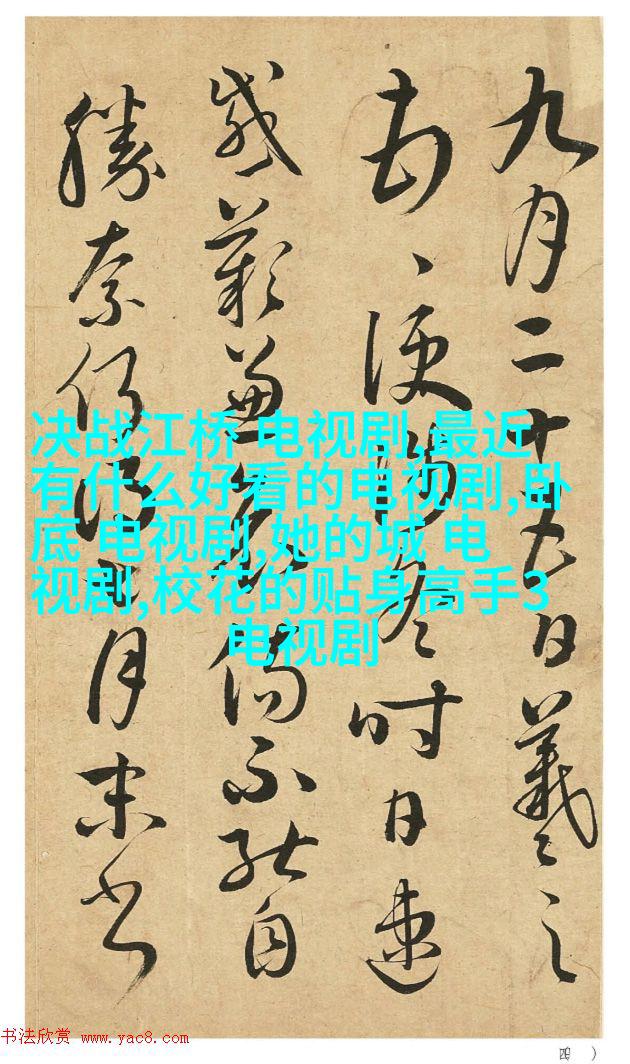 决战江桥 电视剧,最近
有什么好看的电视剧,卧
底 电视剧,她的城 电
视剧,校花的贴身高手3
电视剧
九月二十日羲之
便陟冬時日速
感歎兼傷不能自
勝奈何得月末書
书法欣赏 www.yac8.com
四 )